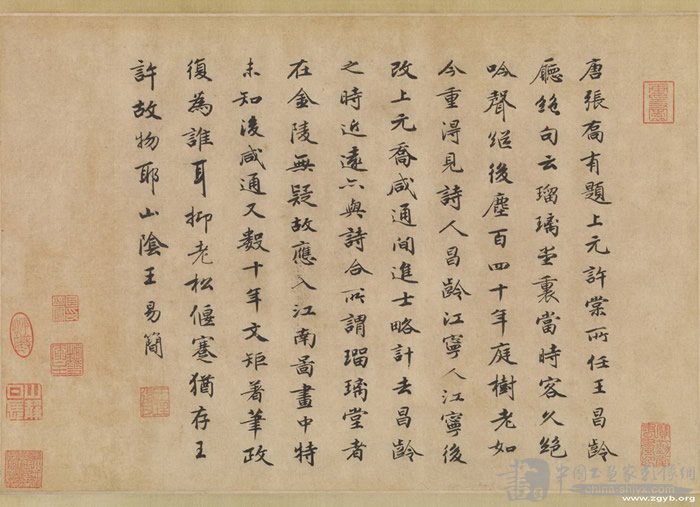 唐張喬有題上元許棠所任王昌齡
廳絶句云瑠璃堂裏當時客久絶
吟聲繼後塵百四十年庭樹老如
今重得見詩人昌齡江寧人江寧後
改上元喬咸通間進士略計去昌齡
之時近遠六與詩合所謂瑠璃堂者
在金陵無疑故應入江南啚畫中特
未知後咸通又數十年文矩著筆政
復為誰耳抑老松偃蹇猶存王
許故物耶山陰王易簡
中国书画家影像網
china-shiyx.com
www.zgyb.org